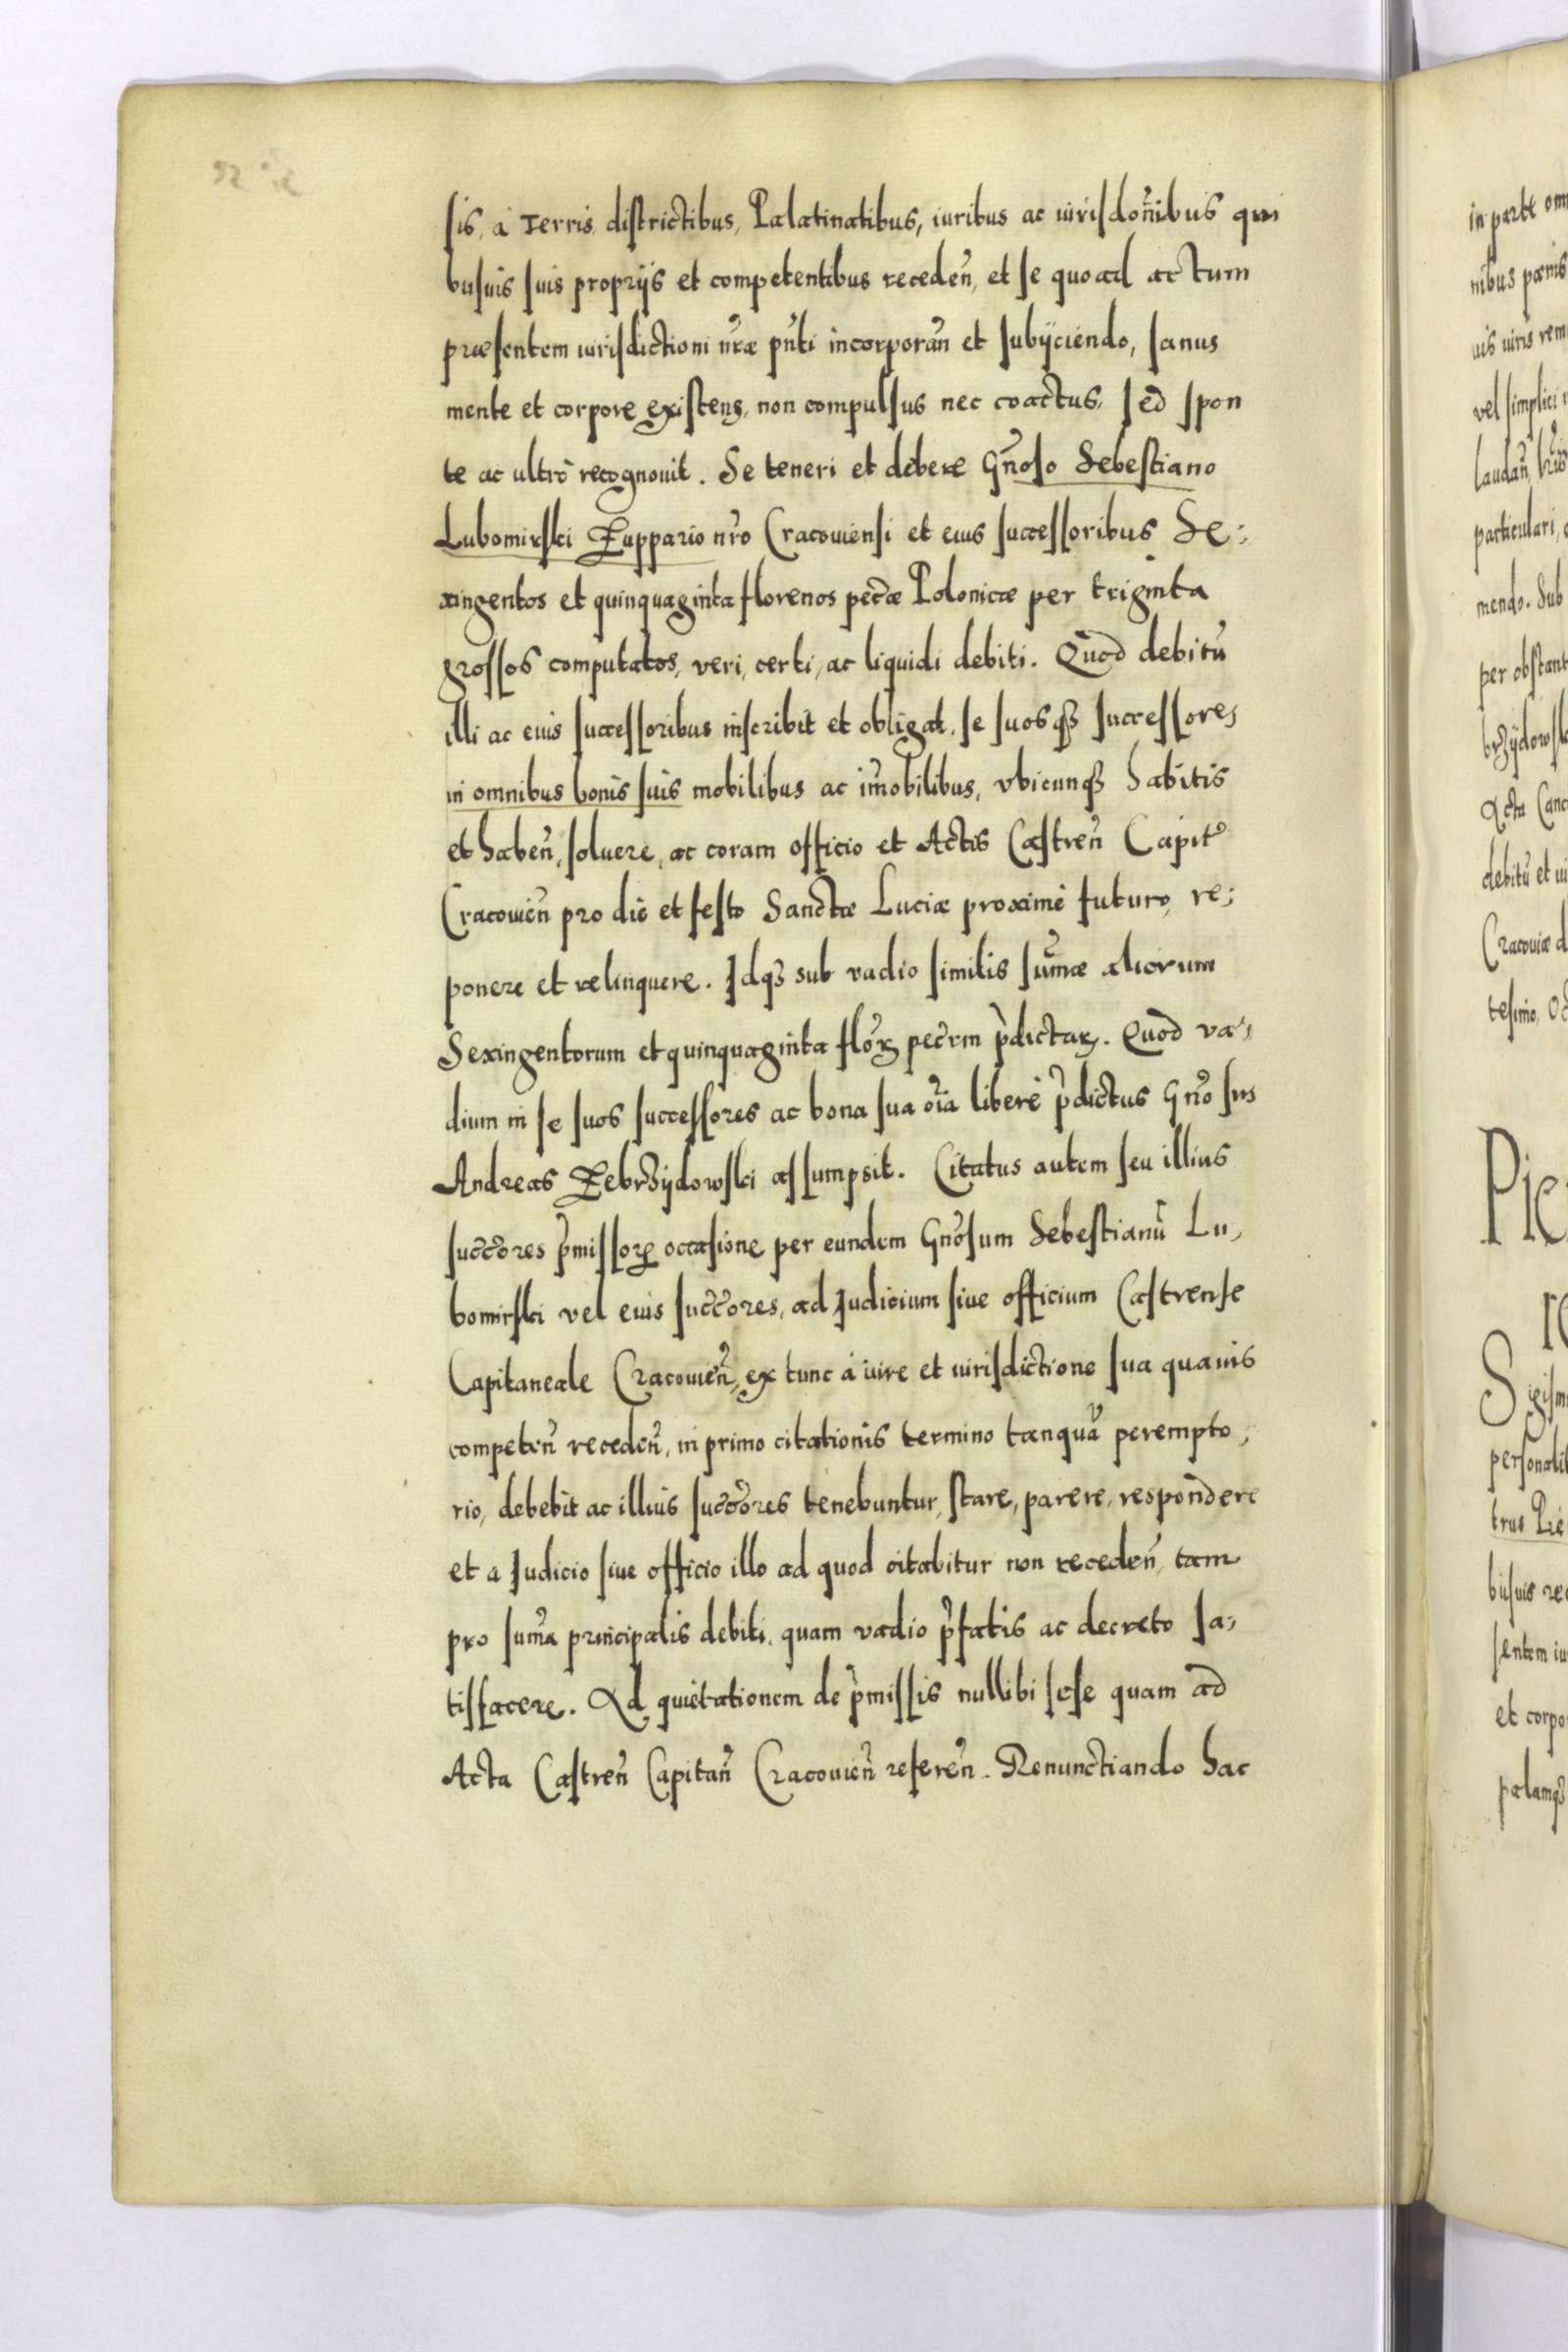 sis, à Terris, districtibus, Palatinatibus, iuribus ac iurisdoñibus qui
busuis suis proprijs et competentibus receden̄, et se quo ad actum
præsentem iurisdictioni nr̄æ pn̄ti incorporan̄ et subijciendo, sanus
mente et corpore existens, non compulsus nec coactus, sed spon
te ac ultrò recognouit. Se teneri et debere Gn̄oso Sebestiano
Lubomirski Zuppario nr̄o Cracouiensi et eius successoribus Se-
xingentos et quinquaginta florenos pec̄æ Polonicæ per triginta
grossos computatos, veri, certi, ac liquidi debiti. Quod debitū
illi ac eius successoribus inscribit et obligat, se suosqȝ successores
in omnibus bonis suis mobilibus ac im̄obilibus, vbicunqȝ habitis
et haben̄, soluere, ac coram officio et Actis Castren̄ Capit̄
Cracouien̄ pro die et festo Sanctæ Luciæ proximè futuro, re-
ponere et relinquere. Idqȝ sub vadio similis sum̄æ aliorum
Sexingentorum et quinquaginta flor̄ꝝ pec̄rm p̄dictaꝝ. Quod va-
dium in se suos successores ac bona sua oīa liberè p̄dictus Gn̄osus
Andreas Zebrzijdowski assumpsit. Citatus autem seu illius
succ̄ores p̄missoꝝ occasione per eundem Gn̄osum Sebestianū Lu-
bomirski vel eius succ̄ores, ad Judicium siue officium Castrense
Capitaneale Cracouien̄, ex tunc à iure et iurisdictione sua quauis
competen̄ receden̄, in primo citationis termino tanquā perempto-
rio, debebit ac illius succ̄ores tenebuntur, stare, parere, respondere
et a Judicio siue officio illo ad quod citabitur non receden̄, tam
pro sum̄a principalis debiti, quam vadio p̄fatis ac decreto sa-
tisfacere. Ad quietationem de p̄missis nullibi sese quam ad
Acta Castren̄ Capitan̄ Cracouien̄ referen̄. Renunctiando hac
in parte om
nibus pænis
uis iuris rem
vel simplici
laudan̄
particulari,
mendo. Sub
per obstant
brzijdowsk
Acta Canc
debitū et in
Cracouiæ d
tesimo, Oc
Pie
Sigism
personalit
trus Pie
busuis rec
sentem iu
et corpo
palamqȝ